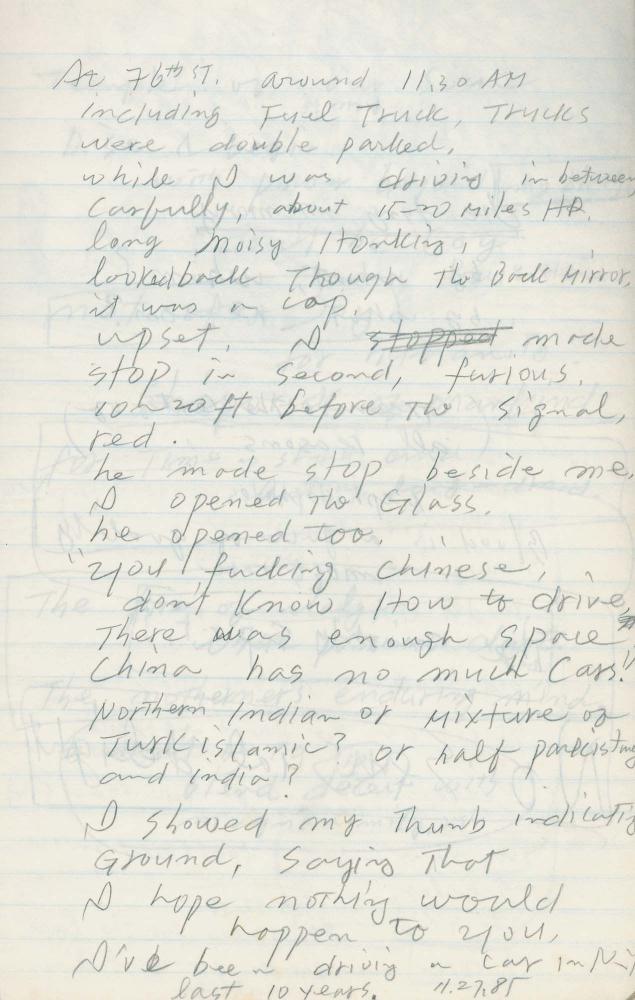 At 76th ST. around 11.30 AM
including Fuel Truck, Trucks
were double parked,
while I was driving in between
Carfully, about 15-20 Miles HR.
long Noisy Honking,
looked back Though The Back Mirror,
it was a cop.
upset, I stopped made
stop in second, furious.
10~20 ft before The signal,
red.
he made stop beside me,
I opened The Glass.
he opened too.
"you fucking Chinese,
don't know How to drive,
There was enough space
China has no much Cars!"
Northern Indian or Mixture of
Turkislamic? or half
and india?
I showed my Thumb indicating
Ground, saying That
I hope nothing would
happen to you,
I've been driving a car in N.Y
last 10 years. 11.27.85